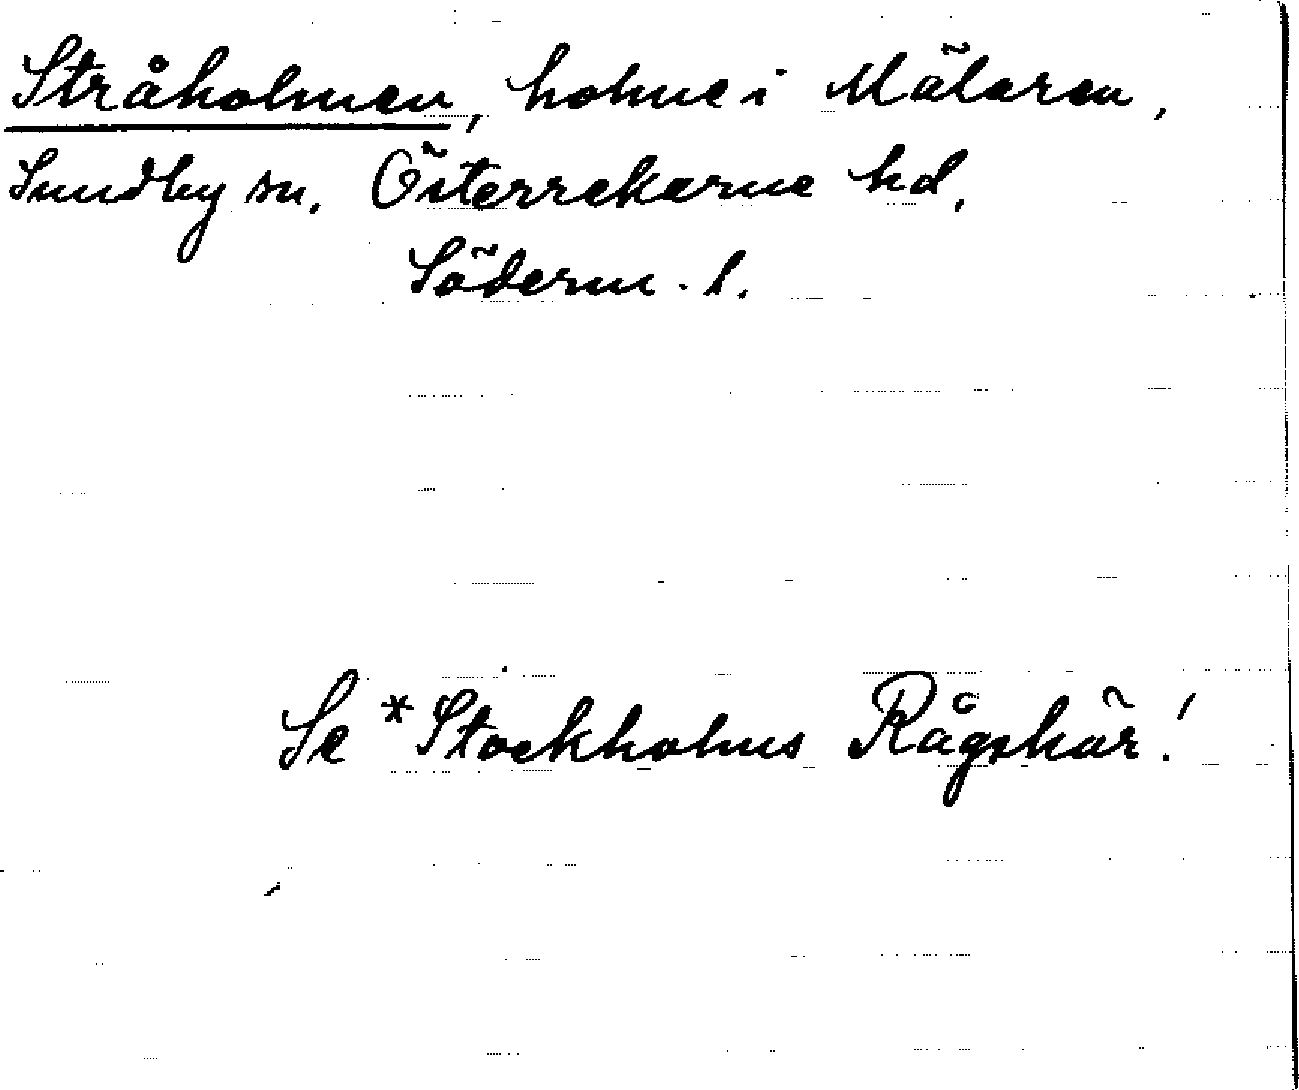 Stråholmen, holme i Mälaren,
Sundby sn. Österrekarne hd.
Söderm. l.
Se *Stockholms Rågskär!